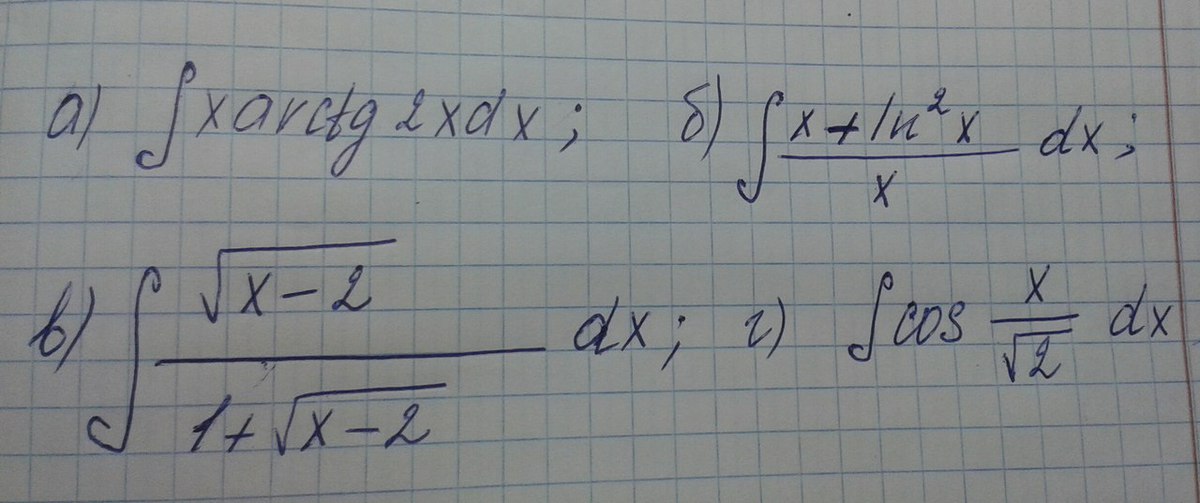 а) ∫ x arctg 2x dx; б) ∫ (x + ln²x)/x dx;
в) ∫ √(x−2)/(1+√(x−2)) dx; г) ∫ cos x/√2 dx